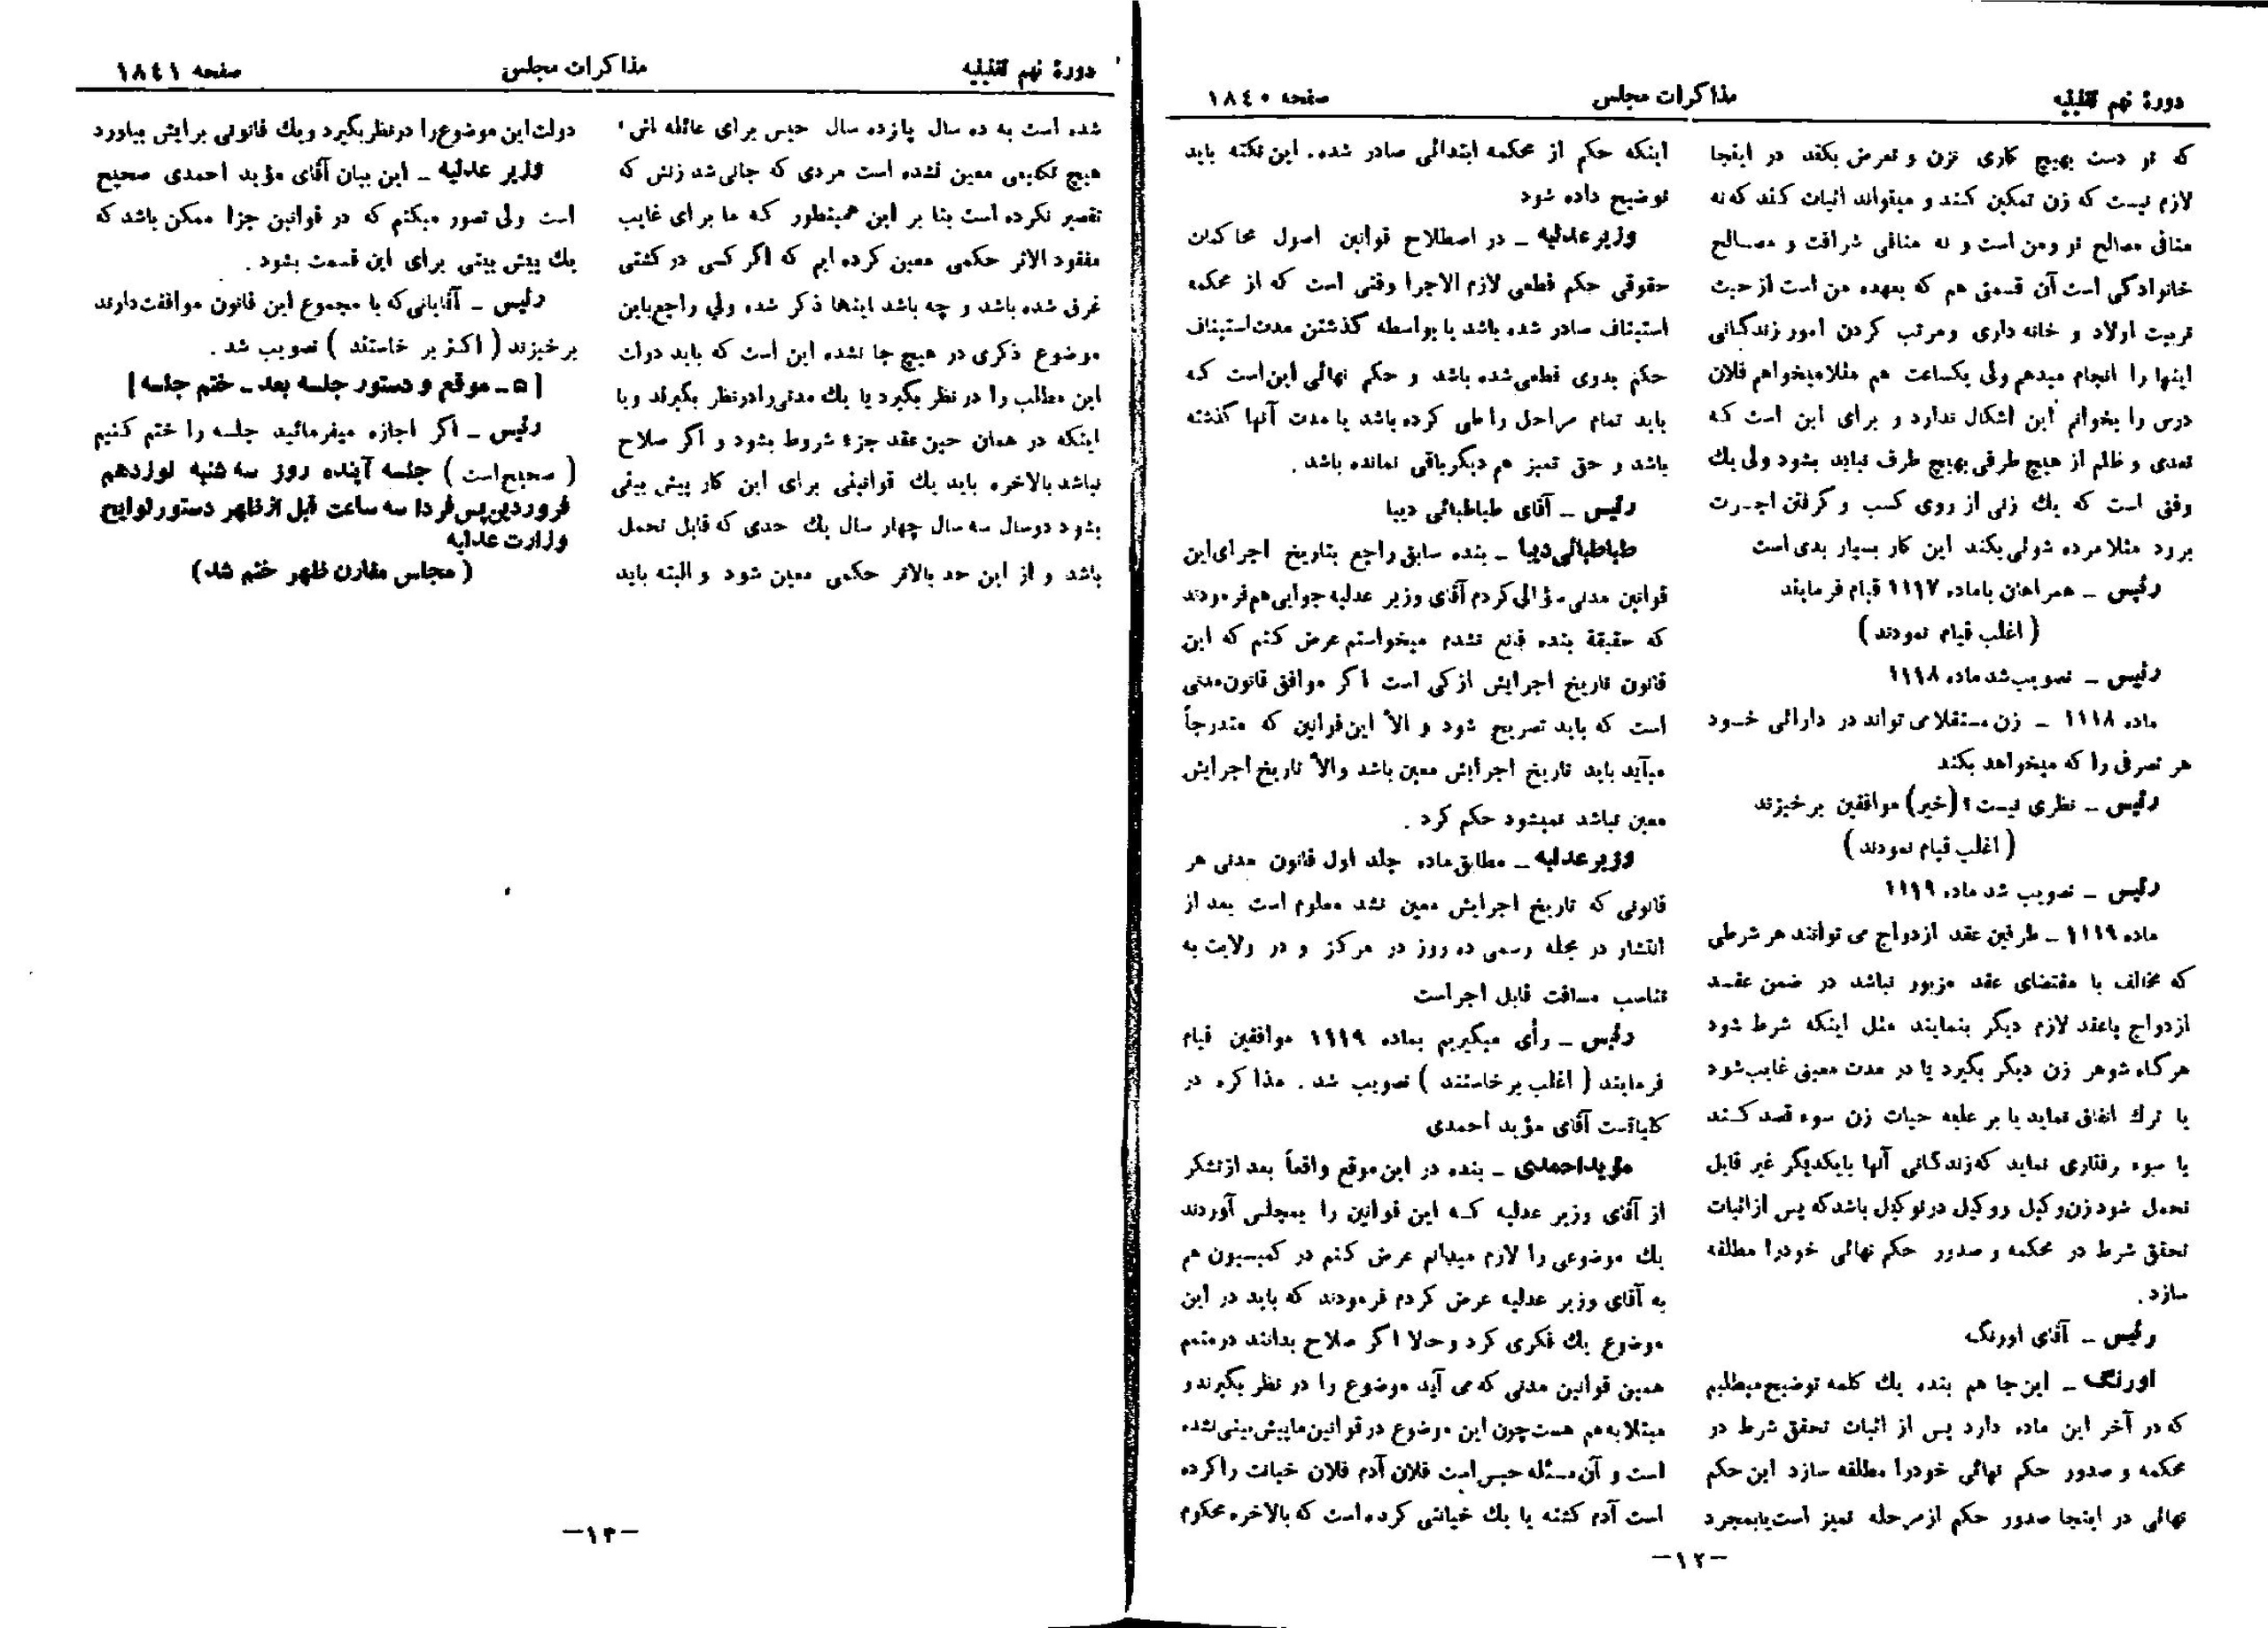 دورهٔ نهم تقنینیه
مذاکرات مجلس
صفحه ۱۸٤۰
که تو دست بهیچ کاری نزن و تعرض بکند در اینجا
لازم نیست که زن تمکین کند و میتواند اثبات کند که نه
منافی مصالح تو ومن است و نه منافی شرافت و مصالح
خانوادگی است آن قسمتی هم که بعهده من است از حیث
تربیت اولاد و خانه داری ومرتب کردن امور زندگانی
اینها را انجام میدهم ولی یکساعت هم مثلا میخواهم فلان
درس را بخوانم این اشکال ندارد و برای این است که
تعدی و ظلم از هیچ طرفی بهیچ طرف نباید بشود ولی یك
وقتی است که یك زنی از روی کسب و گرفتن اجرت
برود مثلا مرده شوئی بکند این کار بسیار بدی است
رئیس ـ همراهان باماده ۱۱۱۷ قیام فرمایند
( اغلب قیام نمودند )
رئیس ـ تصویب شد ماده ۱۱۱۸
ماده ۱۱۱۸ ـ زن مستقلا می تواند در دارائی خود
هر تصرفی را که میخواهد بکند
رئیس ـ نظری نیست؟ (خیر) موافقین برخیزند
( اغلب قیام نمودند )
رئیس ـ تصویب شد ماده ۱۱۱۹
ماده ۱۱۱۹ ـ طرفین عقد ازدواج می توانند هر شرطی
که مخالف با مقتضای عقد مزبور نباشد در ضمن عقد
ازدواج یا عقد لازم دیگر بنمایند مثل اینکه شرط شود
هرگاه شوهر زن دیگر بگیرد یا در مدت معینی غایب شود
یا ترك انفاق نماید یا بر علیه حیات زن سوء قصد کند
یا سوء رفتاری نماید که زندگانی آنها بایکدیگر غیر قابل
تحمل شود زن وکیل و وکیل در توکیل باشد که پس از اثبات
تحقق شرط در محکمه و صدور حکم نهائی خودرا مطلقه
سازد .
رئیس ـ آقای اورنگ
اورنگ ـ این جا هم بنده یك کلمه توضیح میطلبم
که در آخر این ماده دارد پس از اثبات تحقق شرط در
محکمه و صدور حکم نهائی خودرا مطلقه سازد این حکم
نهائی در اینجا صدور حکم از مرحله تمیز است یا بمجرد
اینکه حکم از محکمه ابتدائی صادر شده . این نکته باید
توضیح داده شود
وزیر عدلیه ـ در اصطلاح قوانین اصول محاکمات
حقوقی حکم قطعی لازم الاجرا وقتی است که از محکمه
استیناف صادر شده باشد یا بواسطه گذشتن مدت استیناف
حکم بدوی قطعی شده باشد و حکم نهائی این است که
باید تمام مراحل را طی کرده باشد یا مدت آنها گذشته
باشد و حق تمیز هم دیگر باقی نمانده باشد .
رئیس ـ آقای طباطبائی دیبا
طباطبائی دیبا ـ بنده سابق راجع بتاریخ اجرای این
قوانین مدنی سؤالی کردم آقای وزیر عدلیه جوابی هم فرمودند
که حقیقة بنده قانع نشدم میخواستم عرض کنم که این
قانون تاریخ اجرایش از کی است اگر موافق قانون مدنی
است که باید تصریح شود و الاّ این قوانین که متدرجاً
میآید باید تاریخ اجرایش معین باشد والاّ تاریخ اجرایش
معین نباشد نمیشود حکم کرد .
وزیر عدلیه ـ مطابق ماده جلد اول قانون مدنی هر
قانونی که تاریخ اجرایش معین نشد معلوم است بعد از
انتشار در مجله رسمی ده روز در مرکز و در ولایت به
تناسب مسافت قابل اجراست
رئیس ـ رأی میگیریم بماده ۱۱۱۹ موافقین قیام
فرمایند ( اغلب برخاستند ) تصویب شد . مذاکره در
کلیاتست آقای مؤید احمدی
مؤید احمدی ـ بنده در این موقع واقعاً بعد از تشکر
از آقای وزیر عدلیه که این قوانین را بمجلس آوردند
یك موضوعی را لازم میدانم عرض کنم در کمیسیون هم
به آقای وزیر عدلیه عرض کردم فرمودند که باید در این
موضوع یك فکری کرد و حالا اگر صلاح بدانند در متمم
همین قوانین مدنی که می آید موضوع را در نظر بگیرند و
مبتلابه هم هست چون این موضوع در قوانین ما پیش بینی نشده
است و آن مسئله حبس است فلان آدم فلان خیانت را کرده
است آدم کشته یا یك خیانتی کرده است که بالاخره محکوم
ـ۱۲ـ
دورهٔ نهم تقنینیه
مذاکرات مجلس
صفحه ۱۸٤۱
شده است به ده سال پازده سال حبس برای عائله اش
هیچ تکلیفی معین نشده است مردی که جانی شد زنش که
تقصیر نکرده است بنا بر این همینطور که ما برای غایب
مفقود الاثر حکمی معین کرده ایم که اگر کسی در کشتی
غرق شده باشد و چه باشد اینها ذکر شده ولی راجع باین
موضوع ذکری در هیچ جا نشده این است که باید دولت
این مطلب را در نظر بگیرد یا یك مدتی را در نظر بگیرند و یا
اینکه در همان حین عقد جزء شروط بشود و اگر صلاح
نباشد بالاخره باید یك قوانینی برای این کار پیش بینی
بشود دوسال سه سال چهار سال یك حدی که قابل تحمل
باشد و از این حد بالاتر حکمی معین شود و البته باید
دولت این موضوع را در نظر بگیرد و یك قانونی برایش بیاورد
وزیر عدلیه ـ این بیان آقای مؤید احمدی صحیح
است ولی تصور میکنم که در قوانین جزا ممکن باشد که
یك پیش بینی برای این قسمت بشود .
رئیس ـ آقایانی که با مجموع این قانون موافقت دارند
برخیزند ( اکثر بر خاستند ) تصویب شد .
[ ٥ ـ موقع و دستور جلسه بعد ـ ختم جلسه ]
رئیس ـ اگر اجازه میفرمائید جلسه را ختم کنیم
( صحیح است ) جلسه آینده روز سه شنبه نوزدهم
فروردین پس فردا سه ساعت قبل از ظهر دستور لوایح
وزارت عدلیه
( مجلس مقارن ظهر ختم شد )
ـ۱۳ـ